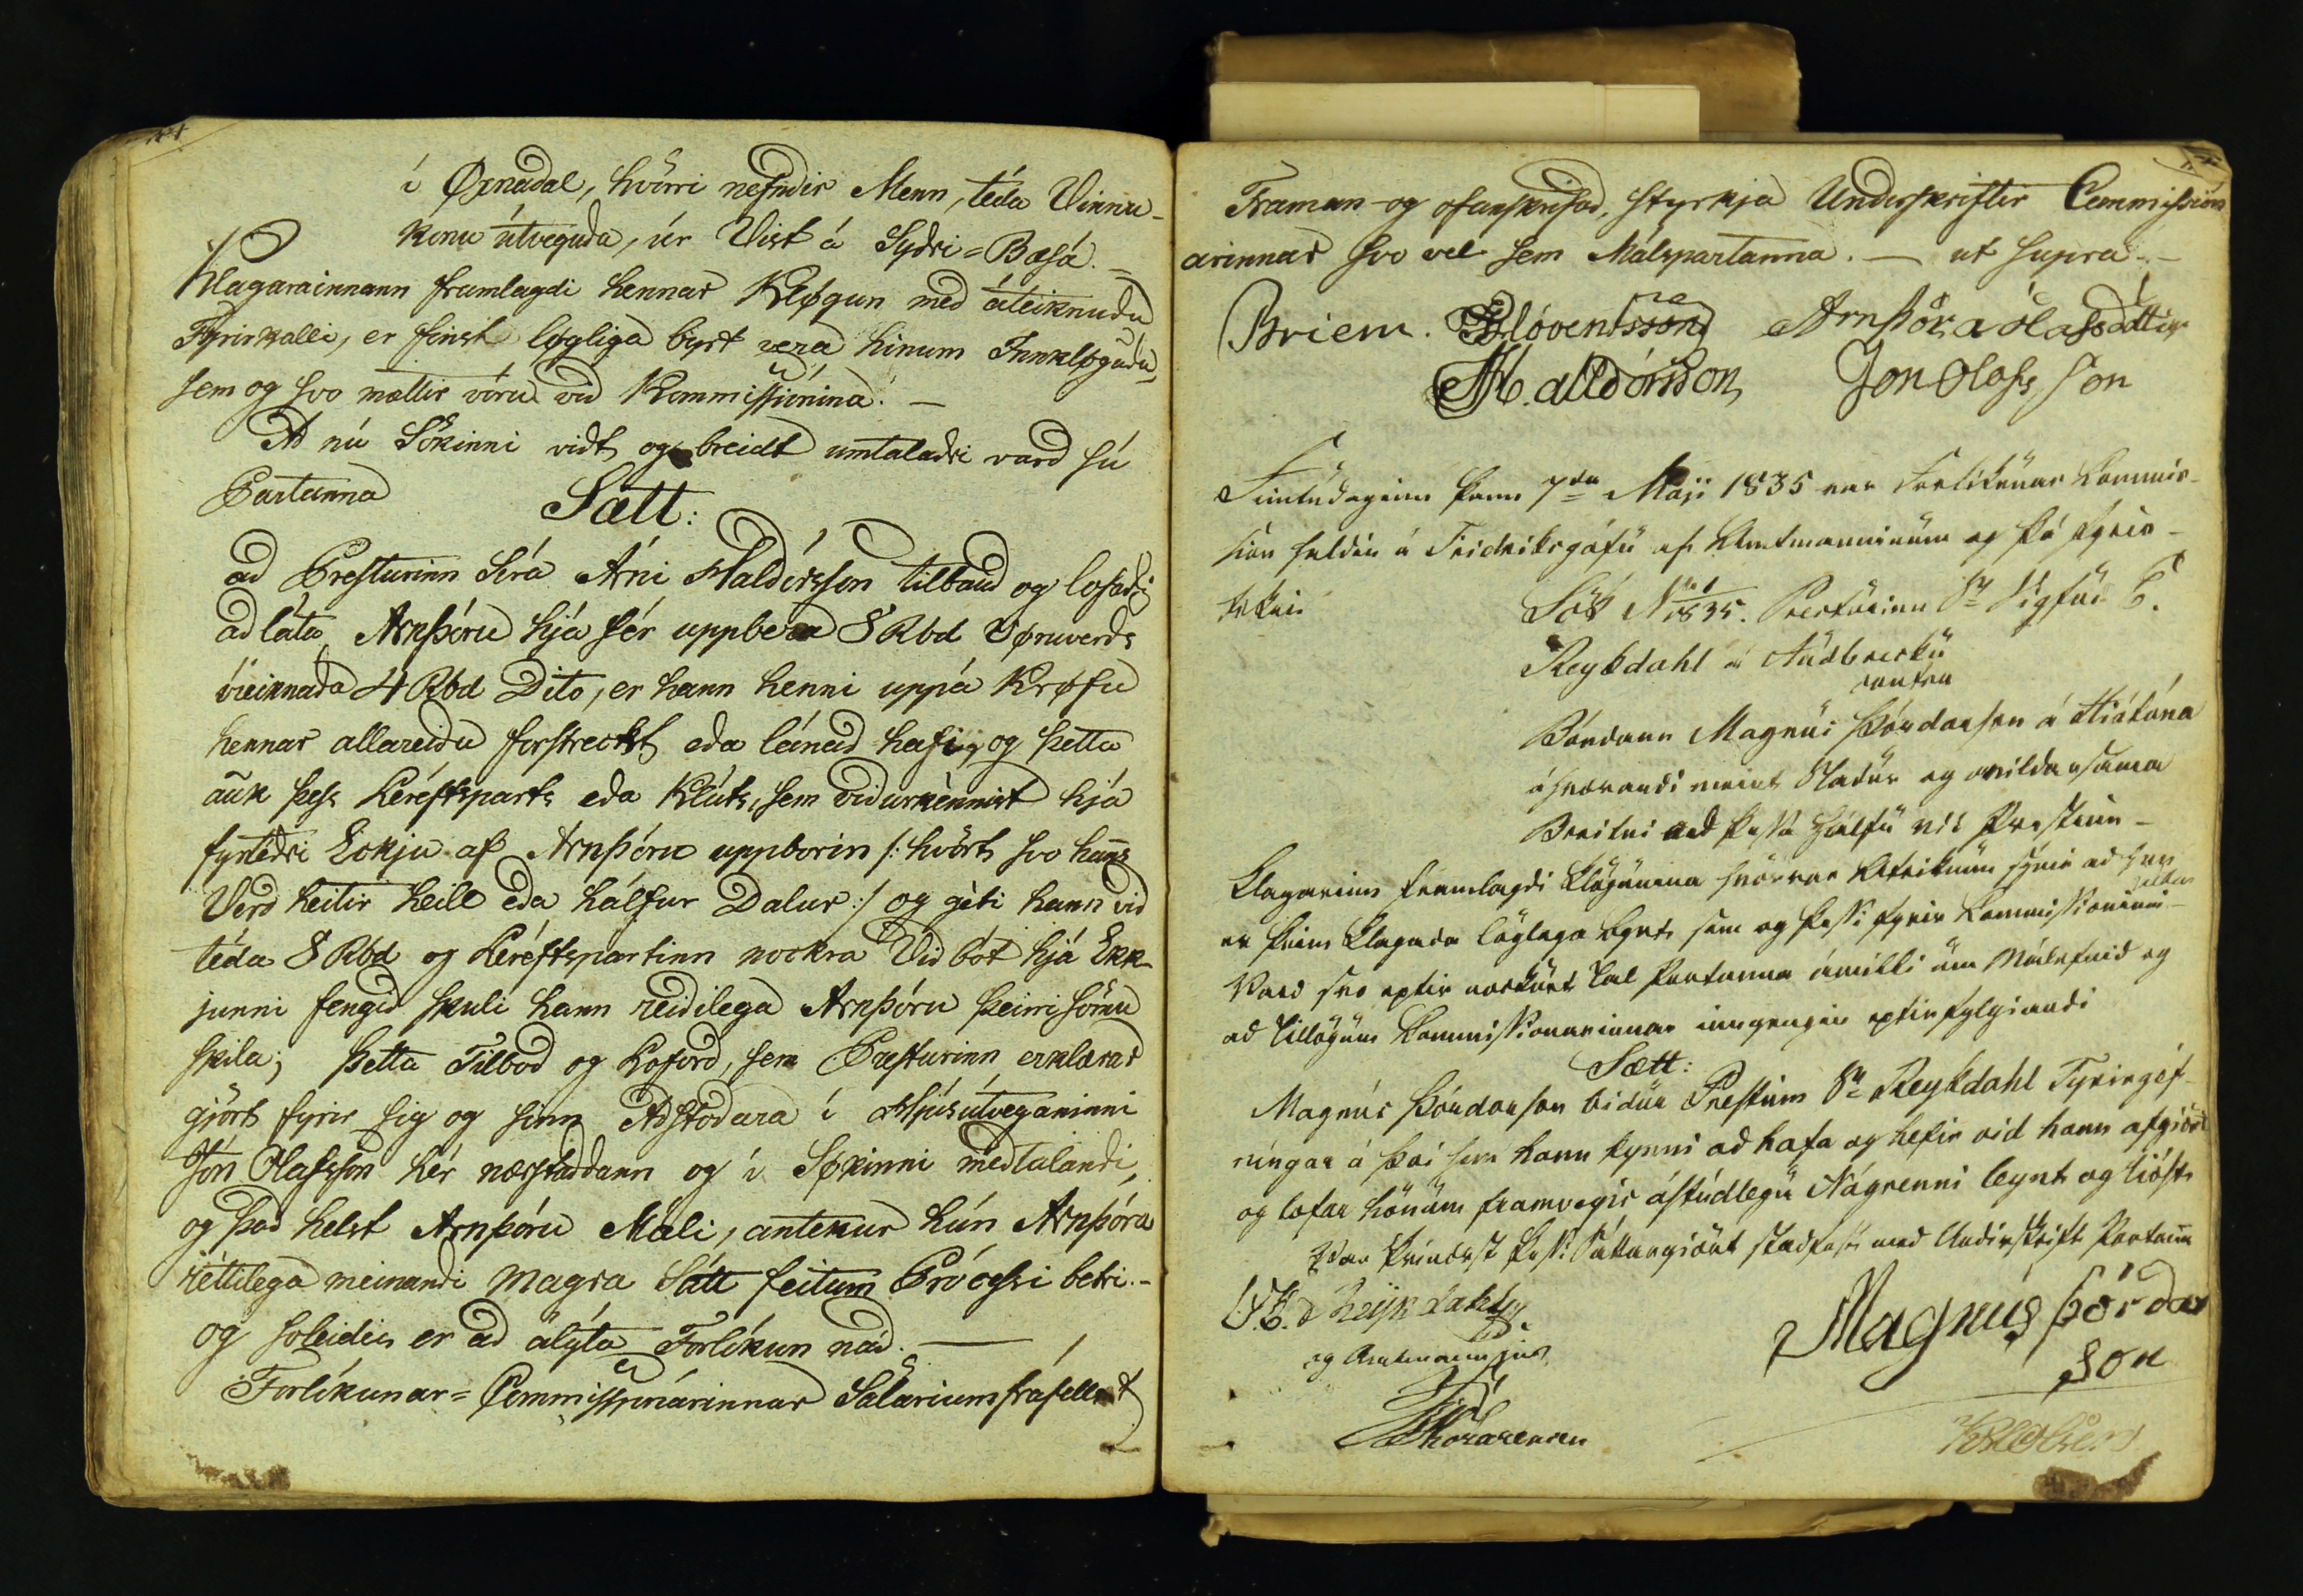 í Øxnadal, hvörri nefndir Menn, téda Vinnu-
konu útveguda, úr Vist á Sydri-Bæsá.
Klagarainnann framlagdi hennar Kløgun med áteiknudu
Fyrirkalli, er finst løgliga birt vera hinum Innkløgudu,
sem og svo mættir vóru vid Kommissiónina. —
Ad nú Sökinni vidt og breidt umtaladri vard sú
Partanna
Sætt:
ad Presturinn Síra Árni Haldórsson tilbaud og lofadi
ad láta Arnþóru hjá sér uppbera 8 Rbd Vøruverds
óreiknada 4 Rbd Dito, er hann henni uppá Krøfu
hennar allareidu forstreckt eda lánad hafi, og þetta
auk þess Léréftsparts eda Klúts, sem vidurkennist hjá
fyrtédri Eckju af Arnþóru uppborin /: hvört svo hans
Verd heitir heill eda hálfur Dalur :/ og géti hann vid
téda 8 Rbd og Léréftspartinn nockra Vidbót hjá Ekk-
junni fengid skuli hann reidilega Arnþóru þeirri sömu
skila; þetta Tilbod og Loford, sem Presturinn erklærar
gjört fyrir sig og sinn Adstodara í Hjúsútveganinni
Jón Olafsson hér nærstaddann og í Søkinni medtalandi,
og þad helst Arnþóru Máli, antekur hún Arnþóra
réttilega meinandi magra Sátt feitum Prócessi betri.-
og soleidis er ad álýta Forlíkun nád. —
Forlíkunar-Commissiónárinnar Salarium frafellst
Framan- og ofanskrifad, styrkja Underskriftir Commissión
arinnar svo vel sem Málspartanna. — ut supra.-
Briem. Arnþóra Olafsdóttir
A H. alldórsson, Jon Olafs son
Fimtudaginn þann 7da Maji 1835 var Forlikunar Commis-
sion haldin á Fridriksgáfu af Amtmanninum og þá fyrir-
tekin
Sök N 1835. Presturinn Sr Sigfús
Reykdahl á Audbrecku
contra
Bóndann Magnús Þórdarson á
áhrærandi meint Stadur og
ad þessa Hálfu vid Prestinn-
Klagarinn framlagdi Klögunina hvörrar Áteiknun sýnir ad hun
er þeim Klagada löglega byrt, sem og þessi fyrir Commissioninni-
Vard svo eptir nockurt Tal Partanna ámilli um Málefnid og
ad Tillögum Commissionarinnar inngengin eptirfylgiandi
Sætt:
Magnús Þórdarson bidur Prestinn Sr Reykdahl Fyrirgéf-
níngar á því sem hann kynni ad hafa og hefir vid hann afgiört
og lofar hönum framvegis ástúdlegu Nágrenni leynt og lióst.
Var þvínæst þessi Sáttargiörd stadfest med Undirskrift Partanna
Reykdahl
Magnús Þórdar
son
Thorarensen